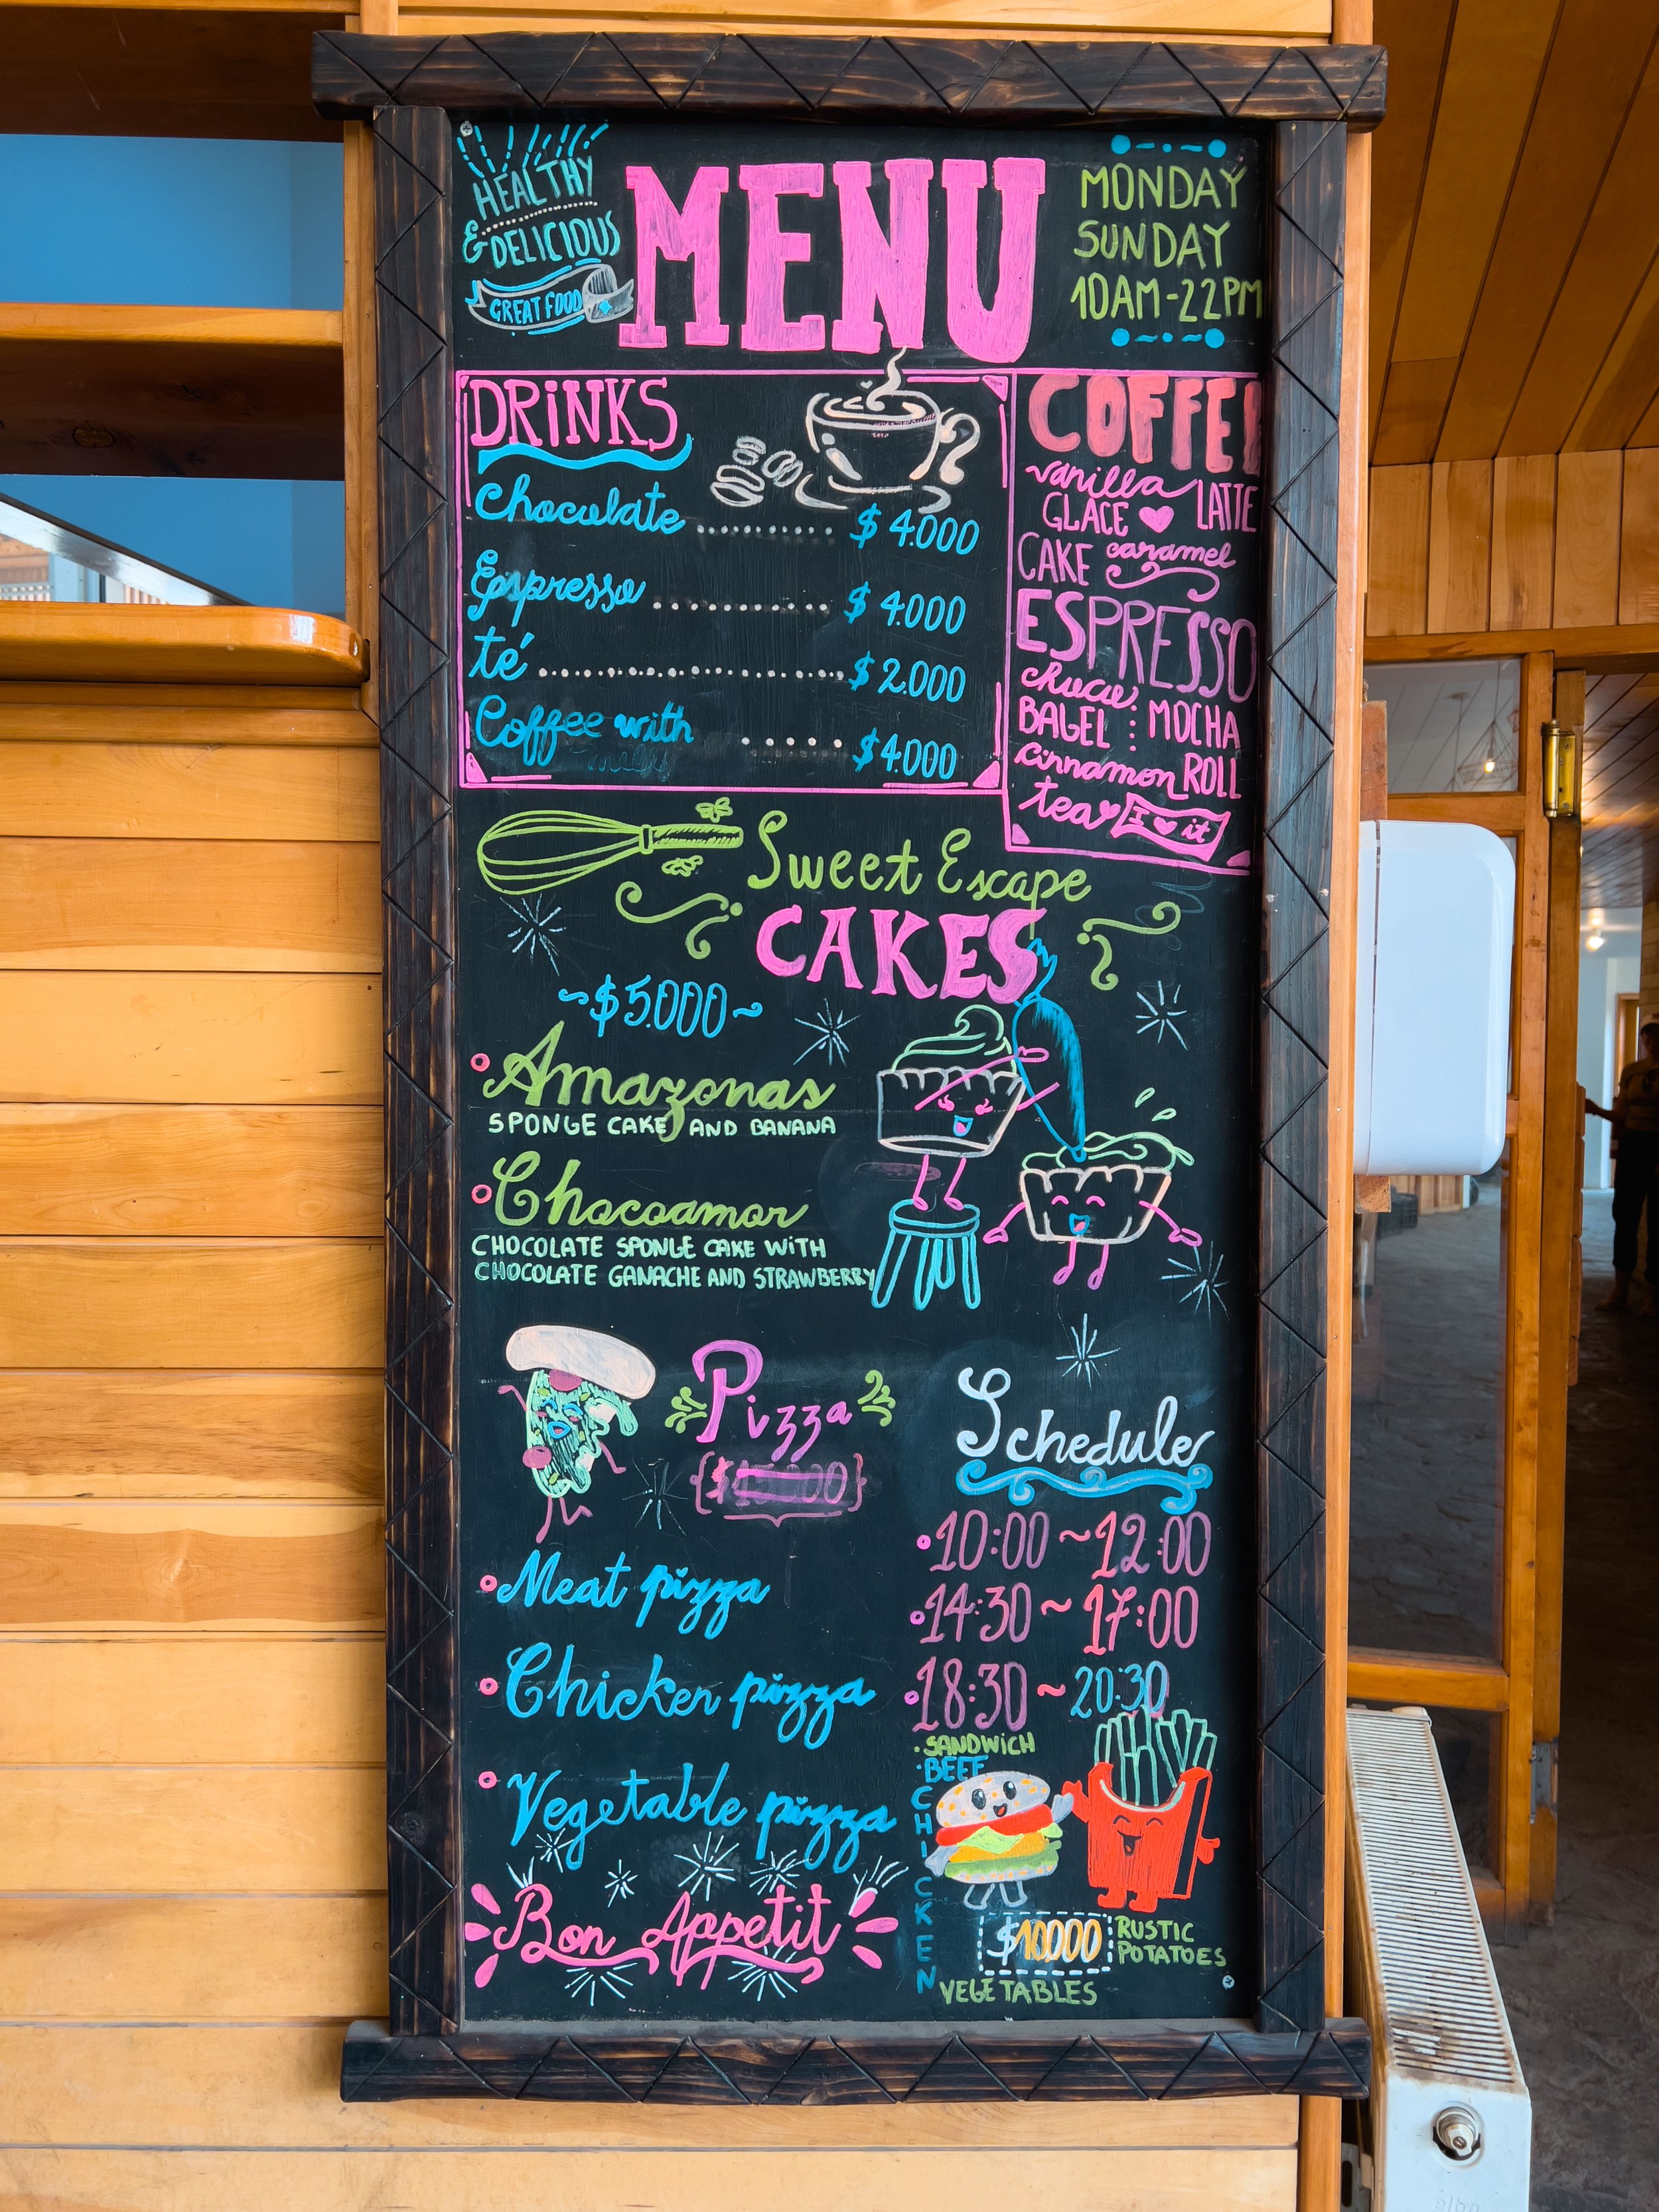 HEALTHY
& DELICIOUS
GREAT FOOD
MENU
MONDAY
SUNDAY
10AM-22PM
DRINKS
Chocolate .......... $ 4.000
Espresso .......... $ 4.000
té .......... $ 2.000
Coffee with ...... $ 4.000
milk
COFFE
vanilla LATTE
GLACE
CAKE caramel
ESPRESSO
BAGEL : MOCHA
cinnamon ROLL
tea I ♥ it
Sweet Escape
CAKES
~$5.000~
Amazonas
SPONGE CAKE AND BANANA
Chocoamor
CHOCOLATE SPONGE CAKE WITH
CHOCOLATE GANACHE AND STRAWBERRY
Pizza
Meat pizza
Chicken pizza
Vegetable pizza
Bon Appetit
Schedule
10:00 ~ 12:00
14:30 ~ 17:00
18:30 ~ 20:30
SANDWICH
BEEF
CHICKEN
$10000
RUSTIC
POTATOES
VEGETABLES